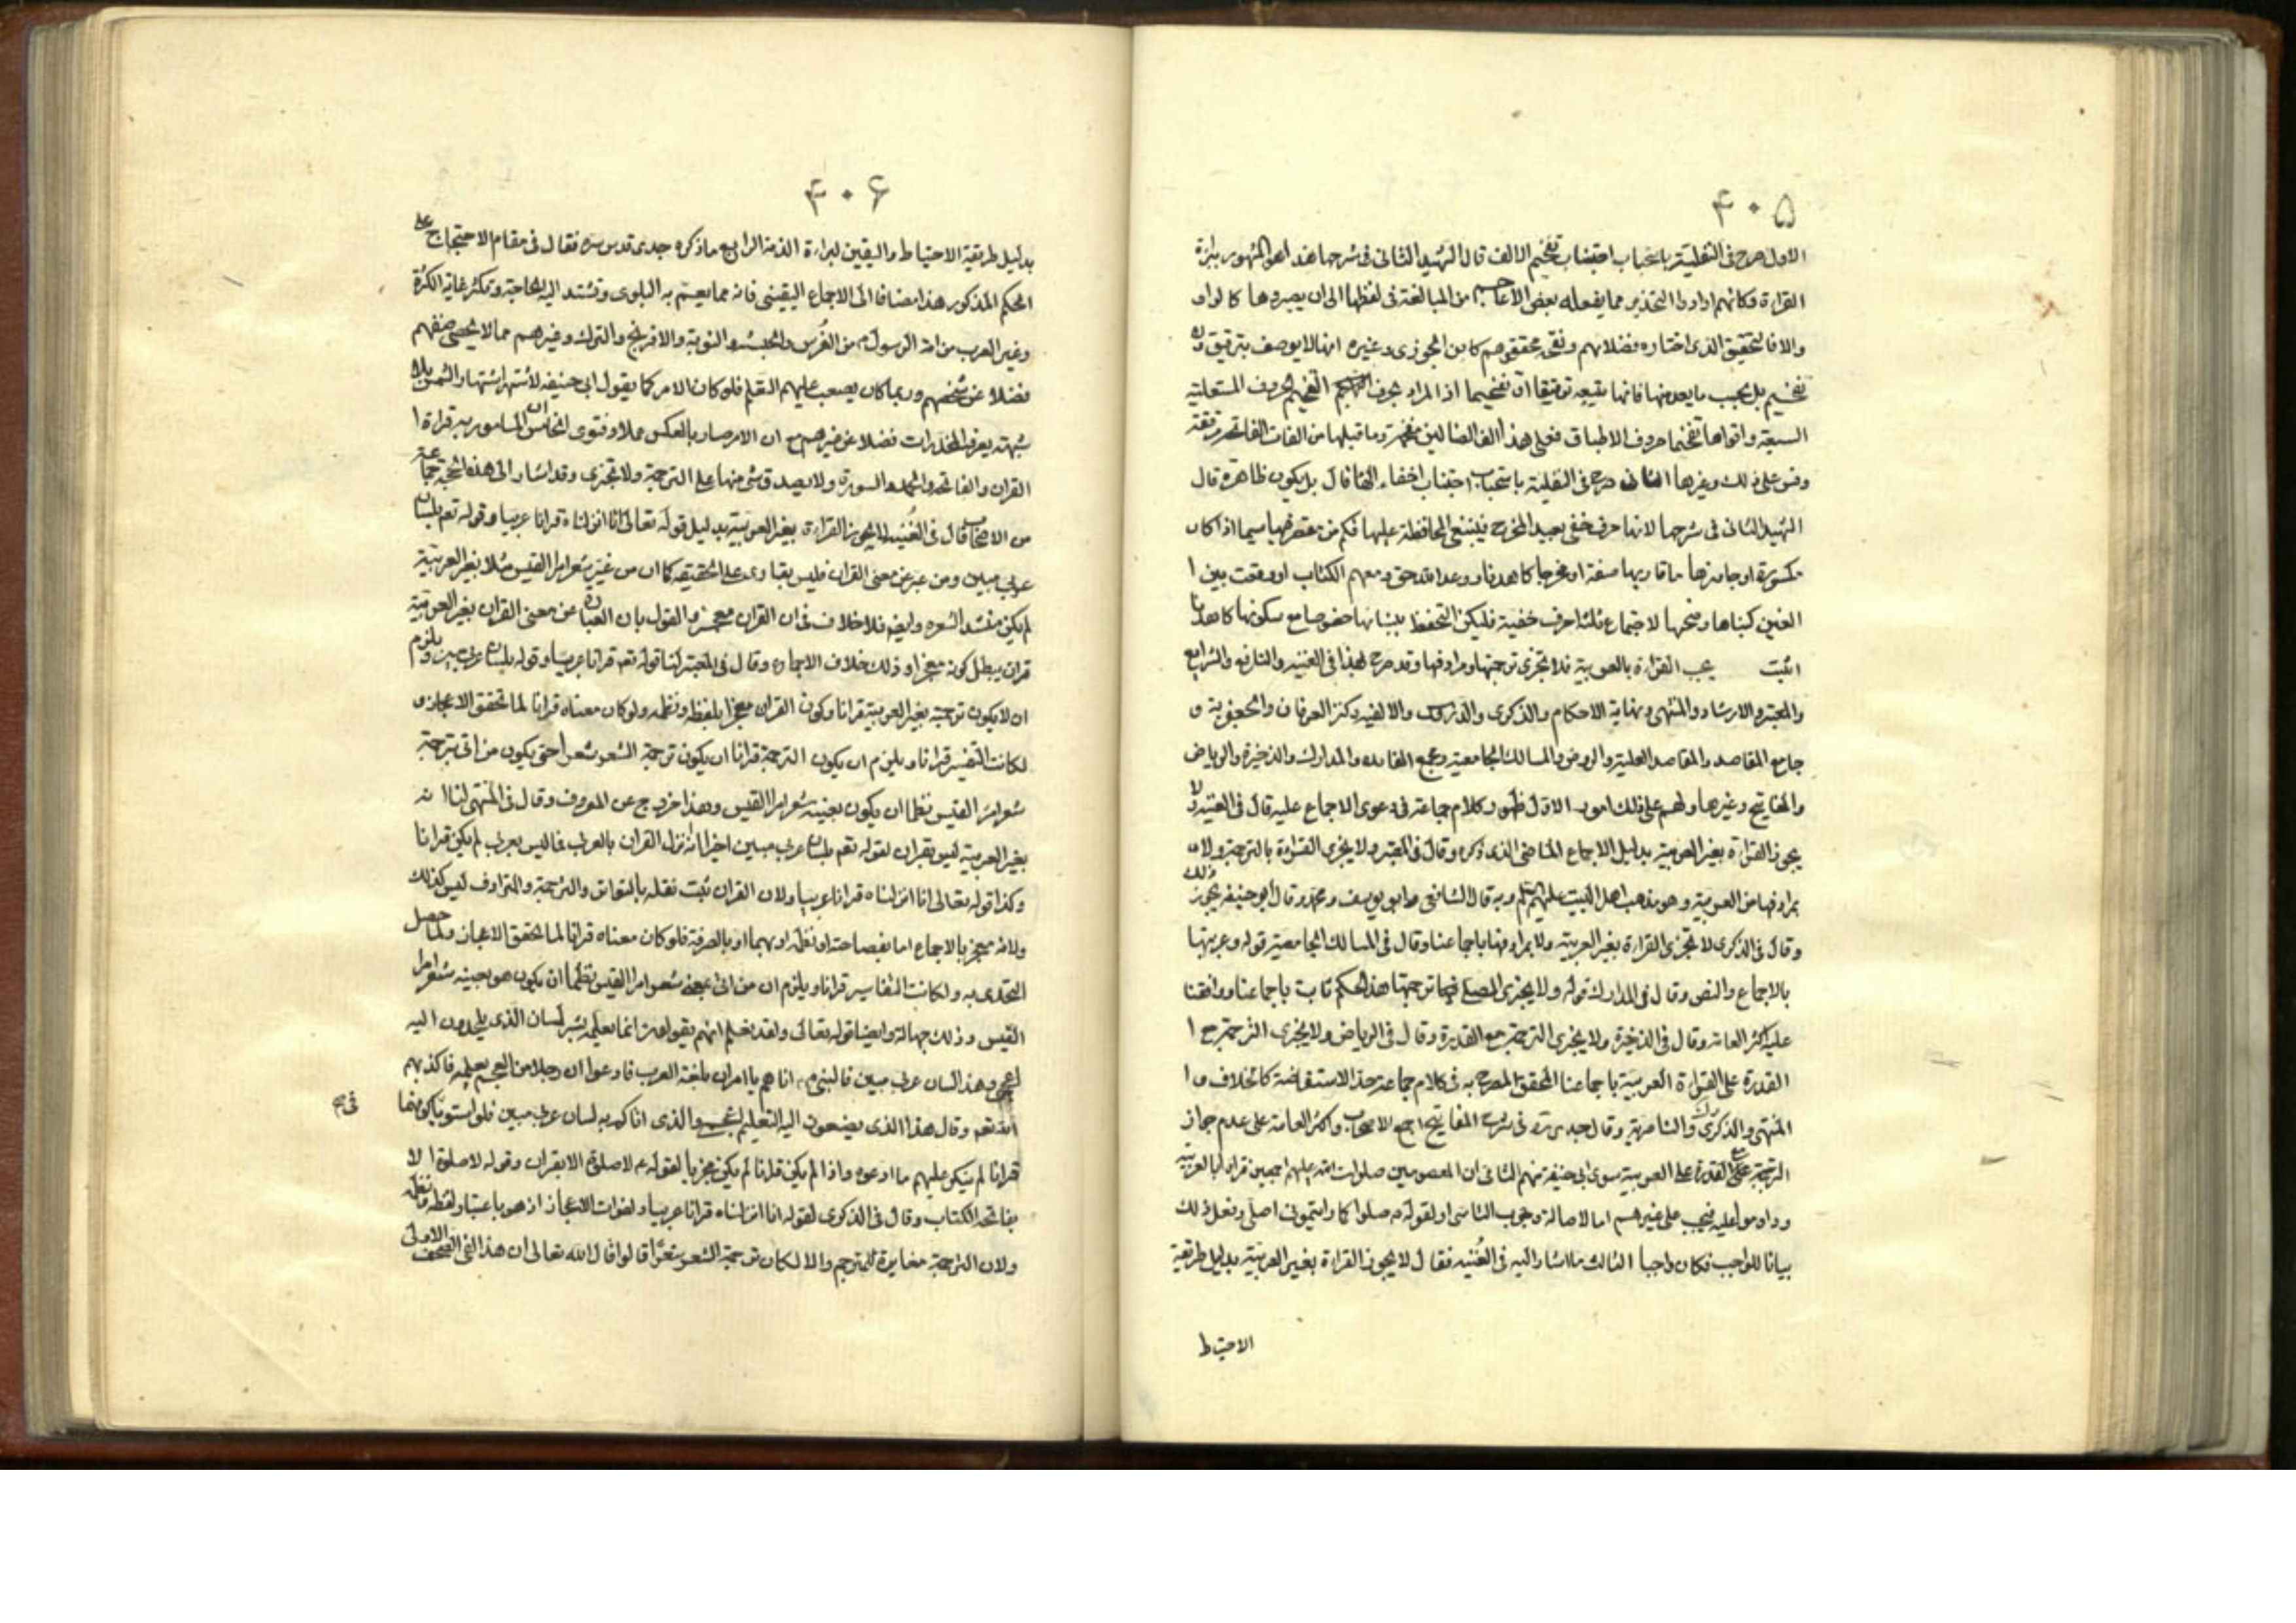 ۴۰۵
الاول صرح فى النفلية باستحباب اجتناب تفخيم الالف قال الشهيد الثانى فى شرحها هذا هو المشهور بين
القراءة وكانهم ارادوا التحذير مما يفعله بعض الاعاجم من المبالغة فى لفظها الى ان يصيروها كالواو
والا فالتحقيق الذى اختاره فضلائهم ونقى محققوهم كابن الجوزى وغيره انها لا يوصف بترقيق ولا
تفخيم بل بحسب ما يعد منها فانها يتبعه ترقيقا او تفخيما اذ المراد بحروف التفخيم الحروف المستعلية
السبعة واقواها تفخيما حروف الاطباق فعلى هذا الف الضالين مفخمة وما قبلها من الفات الفاتحة مرققة
وقس على ذلك وغيرها الثانى صرح فى النفلية باستحباب اجتناب اخفاء الهاء قال بل يكون ظاهرة قال
الشهيد الثانى فى شرحها لانها حرف خفى بعيد المخرج فينبغى المحافظة عليها فكم من مقصر فيها سيما اذا كان
مكسورة او جاورها ما قاربها صفة او مخرجا كاهدنا ووعد الله حق ومعهم الكتاب او وقعت بين ا
الفين كبناها وضحيها لاجتماع ثلثة احرف خفية فليكن التحفظ ببيانها خصوصا مع سكونها كاهدنا
اثبت يجب القراءة بالعربية فلا تجزى ترجمتها ومرادفها وقد صرح بهذا فى الغنيه والنافع والشرايع
والمعتبر والارشاد والمنتهى ونهاية الاحكام والذكرى والدروس والالفيه وكنز العرفان والجعفرية و
جامع المقاصد والمقاصد العلية والروض والمسالك الجامعية ومجمع الفايده والمدارك والذخيرة والرياض
والمفاتيح وغيرها ولهم على ذلك امور الاول ظهور كلام جماعة فى دعوى الاجماع عليه قال فى الغنيه ولا
يجوز القراءة بغير العربية بدليل الاجماع الماضى الذى ذكره وقال فى المعتبر ولا يجزى القراءة بالترجمة ولا
بمرادفها من العربية وهو مذهب اهل البيت عليهم السلم وبه قال الشافعى وابو يوسف ومحمد وقال ابو حنيفه يجوز ذلك
وقال فى الذكرى لا تجزى القراءة بغير العربية ولا بمرادفها باجماعنا وقال فى المسالك الجامعية قوله وعربيتها
بالاجماع والنص وقال فى المدارك قوله ولا يجزى المصلى فيها ترجمتها هذا الحكم ثابت باجماعنا ووافقنا
عليه اكثر العامه وقال فى الذخيرة ولا يجزى الترجمة مع القدرة وقال فى الرياض ولا يجزى الترجمة مع ا
القدرة على القراءة العربية باجماعنا المحقق المصرح به فى كلام جماعة حد الاستفاضة كالخلاف و ا
المنتهى والذكرى والناصرية وقال جدى ره فى شرح المفاتيح اجمع الاصحاب واكثر العامة على عدم جواز
الترجمة مع القدرة على العربية سوى ابى حنيفة منهم الثانى ان المعصومين صلوات الله عليهم اجمعين قراوا بالعربية
وداوموا عليه فيجب على غيرهم اما لاصالة وجوب التاسى او لقوله ص صلوا كما رايتمونى اصلى وفعل ذلك
بيانا للواجب فكان واجبا الثالث ما اشار اليه فى الغنيه فقال لا يجوز القراءة بغير العربية بدليل طريقة
الاحتياط
۴۰۶
بدليل طريقة الاحتياط واليقين لبراءة الذمة الرابع ما ذكره جدى قدس سره فقال فى مقام الاحتجاج على
الحكم المذكور هذا مضافا الى الاجماع اليقينى فانه مما يعم به البلوى وتشتد اليه الحاجة وتكثر غاية الكثرة
وغير العرب من امة الرسول ص من الفرس والحبشه والنوبة والافرنج والترك وغيرهم مما لا يحصى صنفهم
فضلا عن شخصهم وربما كان يصعب عليهم التعلم فلو كان الامر كما يقول ابى حنيفه لاشتهر اشتهار الشمس بلا
شبهة يعرف المخدرات فضلا عن غيرهم مع ان الامر صار بالعكس عملا وفتوى الخامس ان المامور به قراءة ا
القران والفاتحه والحمد والسورة ولا يصدق شئ منها على الترجمة ولا تجزى وقد اشار الى هذه الحجة جماعة
من الاصحاب قال فى الغنيه لا يجوز القراءة بغير العربية بدليل قوله تعالى انا انزلناه قرانا عربيا وقوله تعم بلسان
عربى مبين ومن عبر عن معنى القران فليس بقارى على الحقيقه كما ان من غير شعر امرا القيس مثلا بغير العربية
لم يكن منشد الشعره وايضم فلا خلاف فى ان القران معجز والقول بان العبارة عن معنى القران بغير العربية
قران يبطل كونه معجزا وذلك خلاف الاجماع وقال فى المعتبر لنا قوله تعم قرانا عربيا وقوله بلسان عربى مبين ويلزم
ان لا يكون ترجمة بغير العربية قرانا وكون القران معجزا بلفظه ونظمه ولو كان معناه قرانا لما تحقق الاعجاز و
لكانت التفسير قرانا ويلزم ان يكون الترجمة قرانا ان يكون ترجمة الشعر شعرا حتى يكون من اتى بترجمة
شعر امرئ القيس نظما ان يكون بعينه شعر امرا القيس وهذا خروج عن المعروف وقال فى المنتهى لنا انه
بغير العربية ليس بقران لقوله تعم بلسان عربى مبين اخبر انه نزل القران بالعربى فما ليس بعربى لم يكن قرانا
وكذا قوله تعالى انا انزلناه قرانا عربيا ولان القران ثبت نقله بالتواتر والترجمة والمترادف ليس كذلك
ولانه معجز بالاجماع اما بفصاحته او نظمه او بهما او بالصرفة فلو كان معناه قرانا لما تحقق الاعجاز ولما حصل
التحدى به ولكانت التفاسير قرانا ويلزم ان من اتى بمعنى شعر امرا القيس نظما ان يكون هو بعينه شعر امرا
القيس وذلك جهالة وايضا قوله تعالى ولقد نعلم انهم يقولون انما يعلمه بشر لسان الذى يلحدون اليه
اعجمى وهذا لسان عربى مبين فالنبى ص اتاهم بالقران بلغة العرب فادعوا ان رجلا من العجم يعلمه فاكذبهم
الله تعم وقال هذا الذى يضعون اليه التعليم اعجمى والذى اتاكم به لسان عربى مبين فلو استويا كونهما فى
قرانا لم ينكر عليهم ما ادعوه واذا لم يكن قرانا لم يكن مجزيا لقوله ع لا صلوة الا بقران وقوله لا صلوة ا لا
بفاتحة الكتاب وقال فى الذكرى لقوله انا انزلناه قرانا عربيا ولفوات الاعجاز اذ هو باعتبار لفظه ونظمه
ولان الترجمة مغايرة للمترجم والا لكان ترجمة الشعر شعرا قالوا قال الله تعالى ان هذا لفى الصحف الاولى